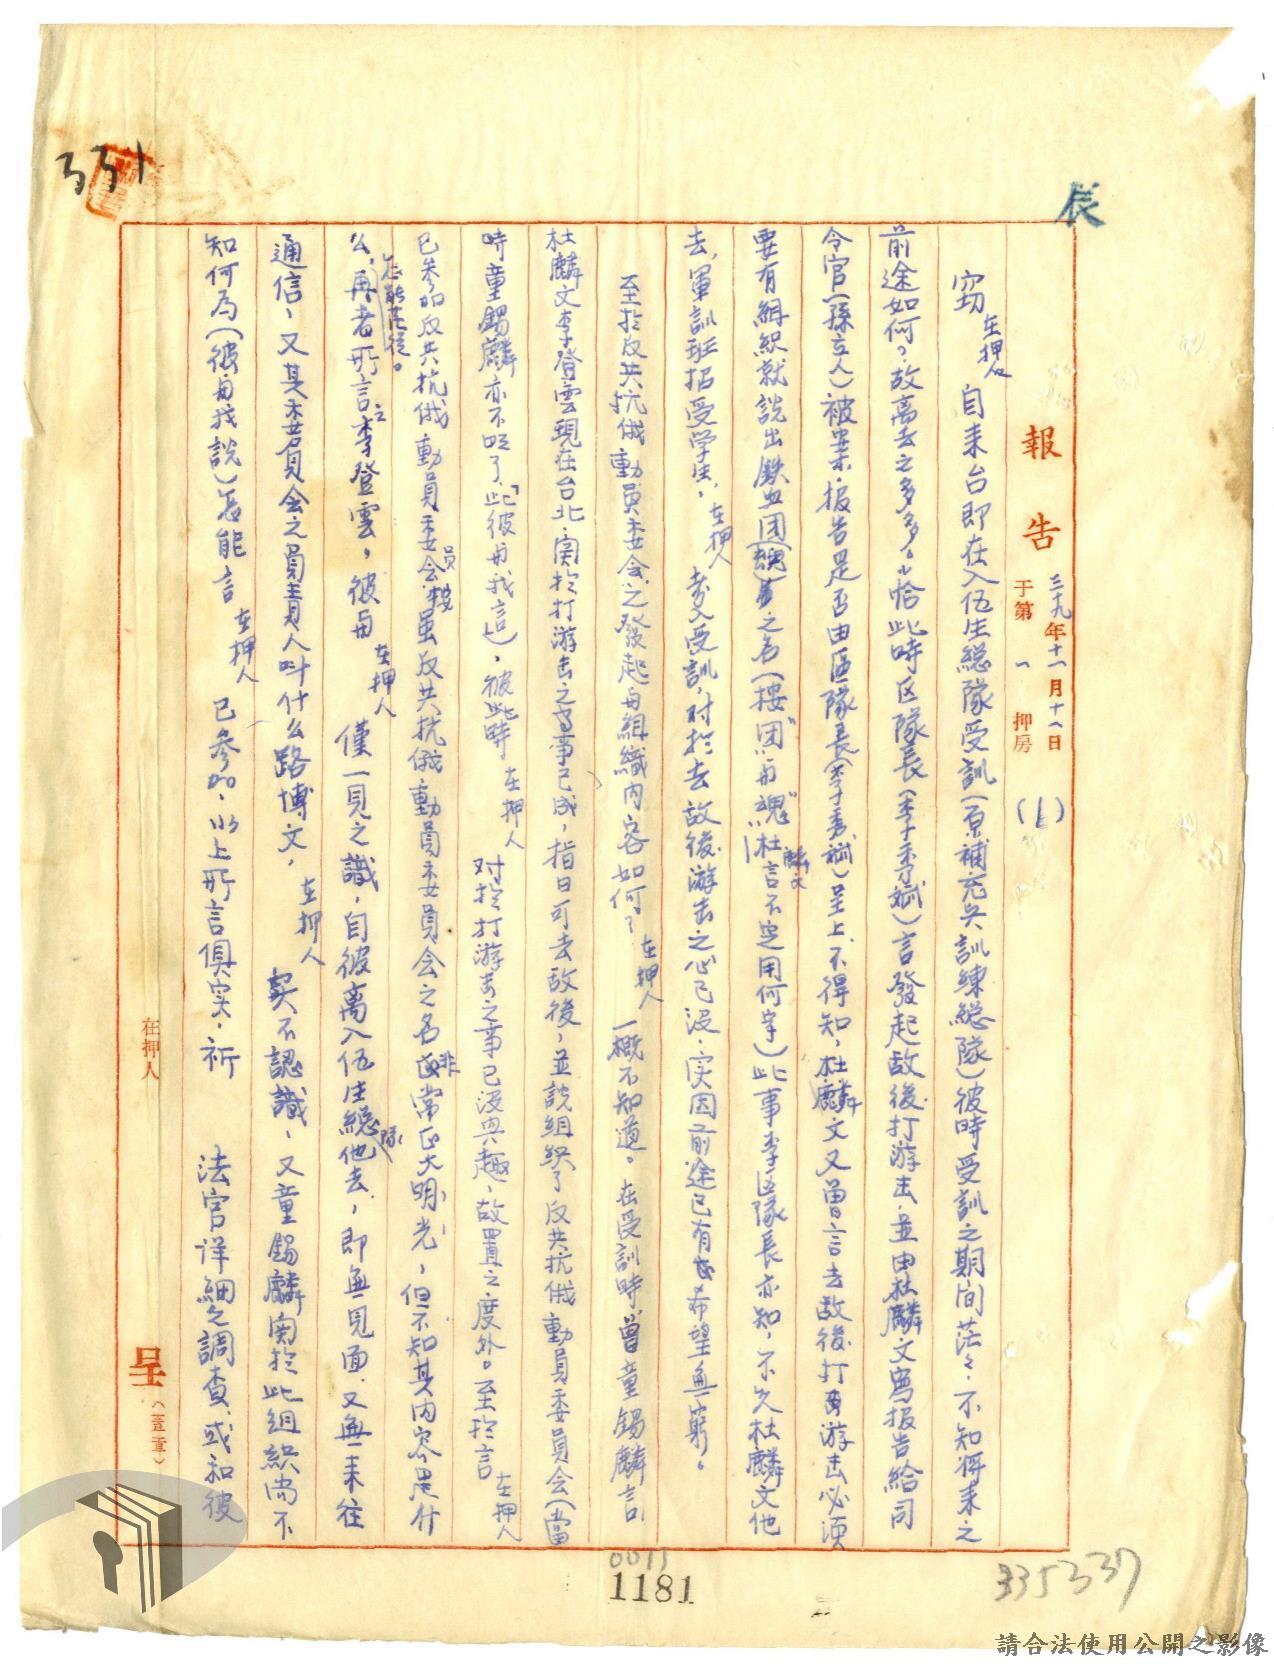 331
長
報告 三九年十一月十八日
于第一押房
(1)
竊在押人自来台即在入伍生総隊受訓(原補充兵訓練総隊)彼時受訓之期间茫々,不知将来之
前途如何,故离去之多多。小恰此時区隊長(李秀斌)言發起敌後打游击,並由杜麟文寫报告給司
令官(孫立人)被案,报告是否由區隊長(李秀斌)呈上不得知,杜麟文又曽言去敌後打游击必須
要有組織就說出鉄血团(魂)之名(按“团”与“魂”杜麟文言不定用何字)此事李区隊長亦知,不久杜麟文他
去,軍訓班招受学生,在押人考入受訓,対於去敌後游击之心已没,实因前途已有希望無窮。
至於反共抗俄動員委会之發起与組織内容如何?在押人一概不知道。在受訓時曽童錫麟言
杜麟文李登雲現在台北,関於打游击之事已成,指日可去敌後,並説組织了反共抗俄動員委員会(當
時童錫麟亦不明了,「此彼与我言」),彼此時在押人対於打游击之事已没興趣,故置之度外。至於言在押人
已参加反共抗俄動員委員会,按虽反共抗俄動員委員会之名非常正大明光,但不知其内容是什
么,怎能茫從。再者所言之李登雲,彼与在押人僅一見之識,自彼离入伍生総隊他去,即無見面,又無来往
通信,又其委員会之員責人叫什么路博文,在押人実不認識,又童錫麟関於此組织尚不
知何為(彼与我說)怎能言在押人已参加,以上所言俱实,祈 法官详細之調查,或和彼
在押人 呈(蓋章)
0011
1181
335337
請合法使用公開之影像